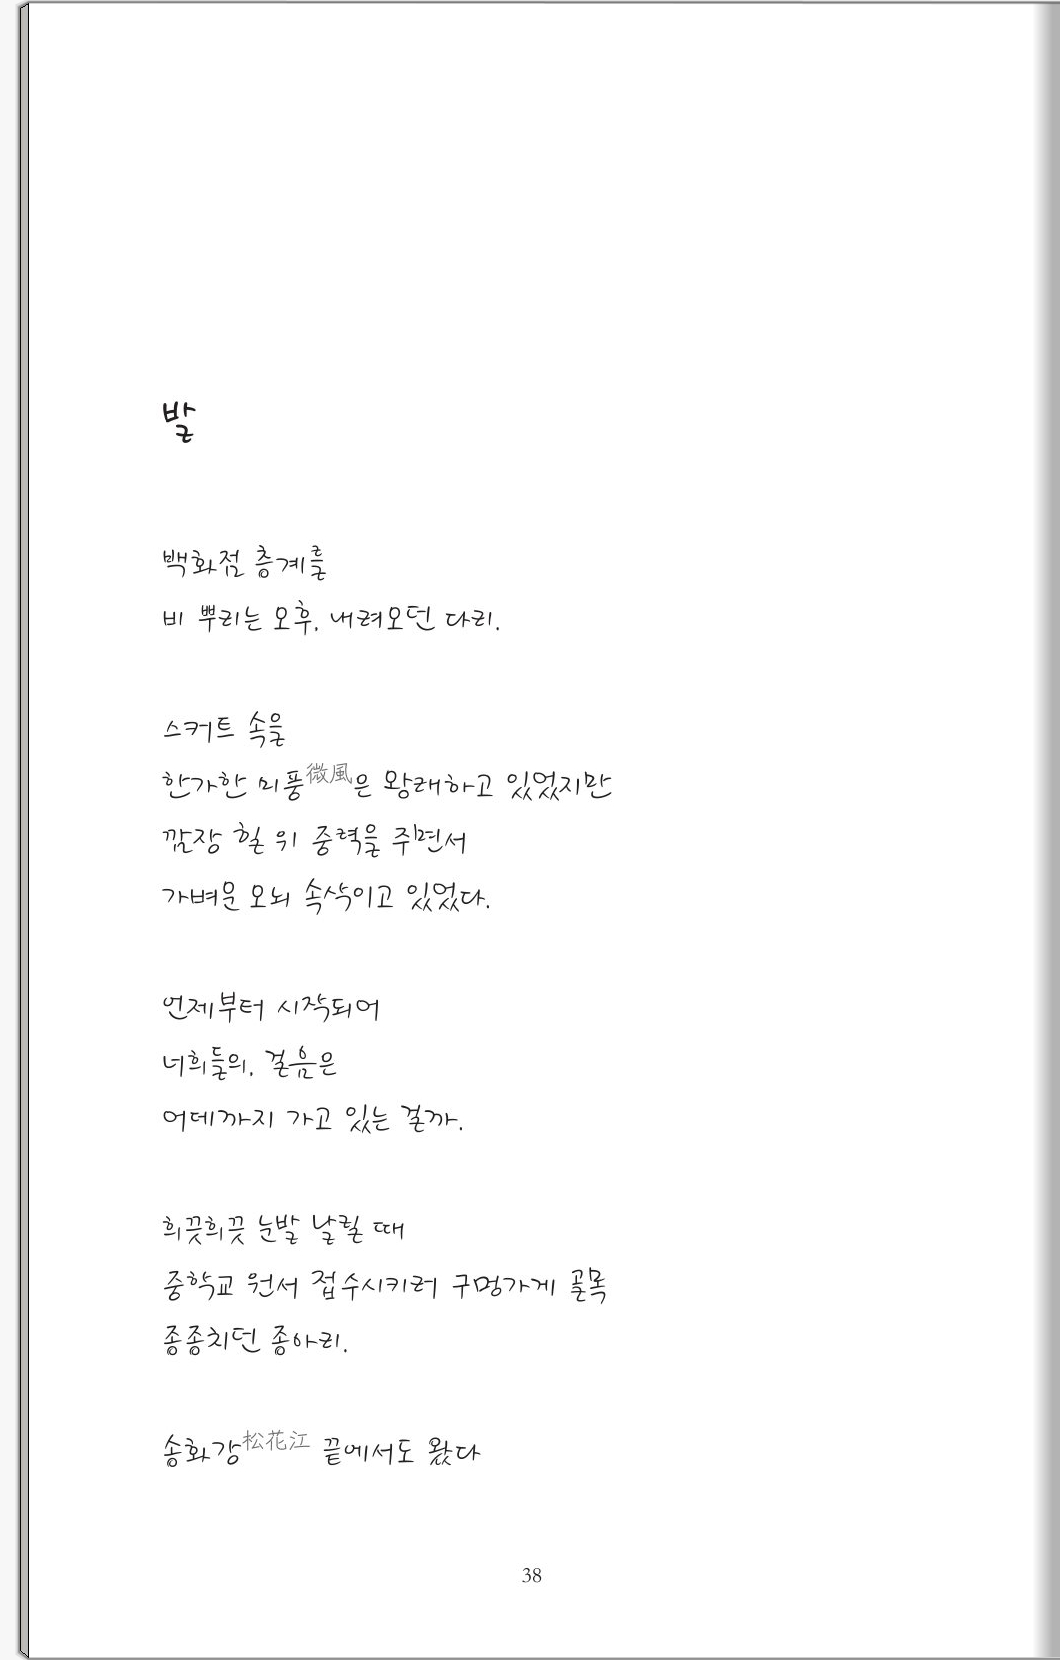 발
백화점 층계를
비 뿌리는 오후, 내려오던 다리.
스커트 속을
한가한 미풍微風은 왕래하고 있었지만
깜장 힐 위 중력을 주면서
가벼운 오뇌 속삭이고 있었다.
언제부터 시작되어
너희들의, 걸음은
어데까지 가고 있는 걸까.
희끗희끗 눈발 날릴 때
중학교 원서 접수시키러 구멍가게 골목
종종치던 종아리.
송화강松花江 끝에서도 왔다
38